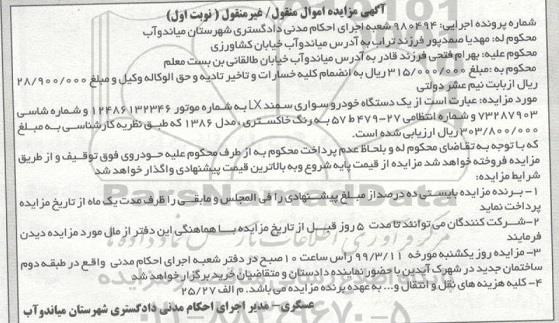 آگهی مزایده اموال منقول/ غیرمنقول ( نوبت اول)
شماره پرونده اجرایی: 980494 شعبه اجرای احکام مدنی دادگستری شهرستان میاندوآب
محکوم له: مهدیا صمدپور فرزند تراب به آدرس میاندوآب خیابان کشاورزی
محکوم علیه: بهرام فتحی فرزند قادر به آدرس میاندوآب خیابان طالقانی بن بست معلم
محکوم به :مبلغ 315/000/000 ریال به انضمام کلیه خسارات و تاخیر تادیه و حق الوکاله وکیل و مبلغ 28/900/000
ریال ازبابت نیم عشر دولتی
مورد مزایده: عبارت است از یک دستگاه خودرو سواری سمند LX به شماره موتور 12486132346 و شماره شاسی
73287903 و شماره انتظامی 27-479ط57 به رنگ خاکستری ، مدل 1386 که طبق نظریه کارشناسی به مبلغ
303/800/000 ریال ارزیابی شده است.
که با توجه به تقاضای محکوم له و بلحاظ عدم پرداخت محکوم به از طرف محکوم علیه خودروی فوق توقیف و از طریق
مزایده فروخته خواهد شد مزایده از قیمت پایه شروع وبه بالاترین قیمت پیشنهادی واگذار خواهد شد
شرایط مزایده:
1- برنده مزایده بایستی ده درصد از مبلغ پیشنهادی را فی المجلس و مابقی را ظرف مدت یک ماه از تاریخ مزایده
پرداخت نماید
2-شرکت کنندگان می توانند تا مدت 5 روز قبل از تاریخ مزایده با هماهنگی این دفتر از مال مورد مزایده دیدن
فرمایند
3- مزایده روز یکشنبه مورخه 99/3/11 راس ساعت 10صبح در دفتر شعبه اجرای احکام مدنی واقع در طبقه دوم
ساختمان جدید در شهرک آیدین با حضور نماینده دادستان و متقاضیان خرید برگزار خواهد شد
4- کلیه هزینه های نقل و انتقال و... به عهده برنده مزایده می باشد. م الف 25/27
عسگری- مدیر اجرای احکام مدنی دادگستری شهرستان میاندوآب